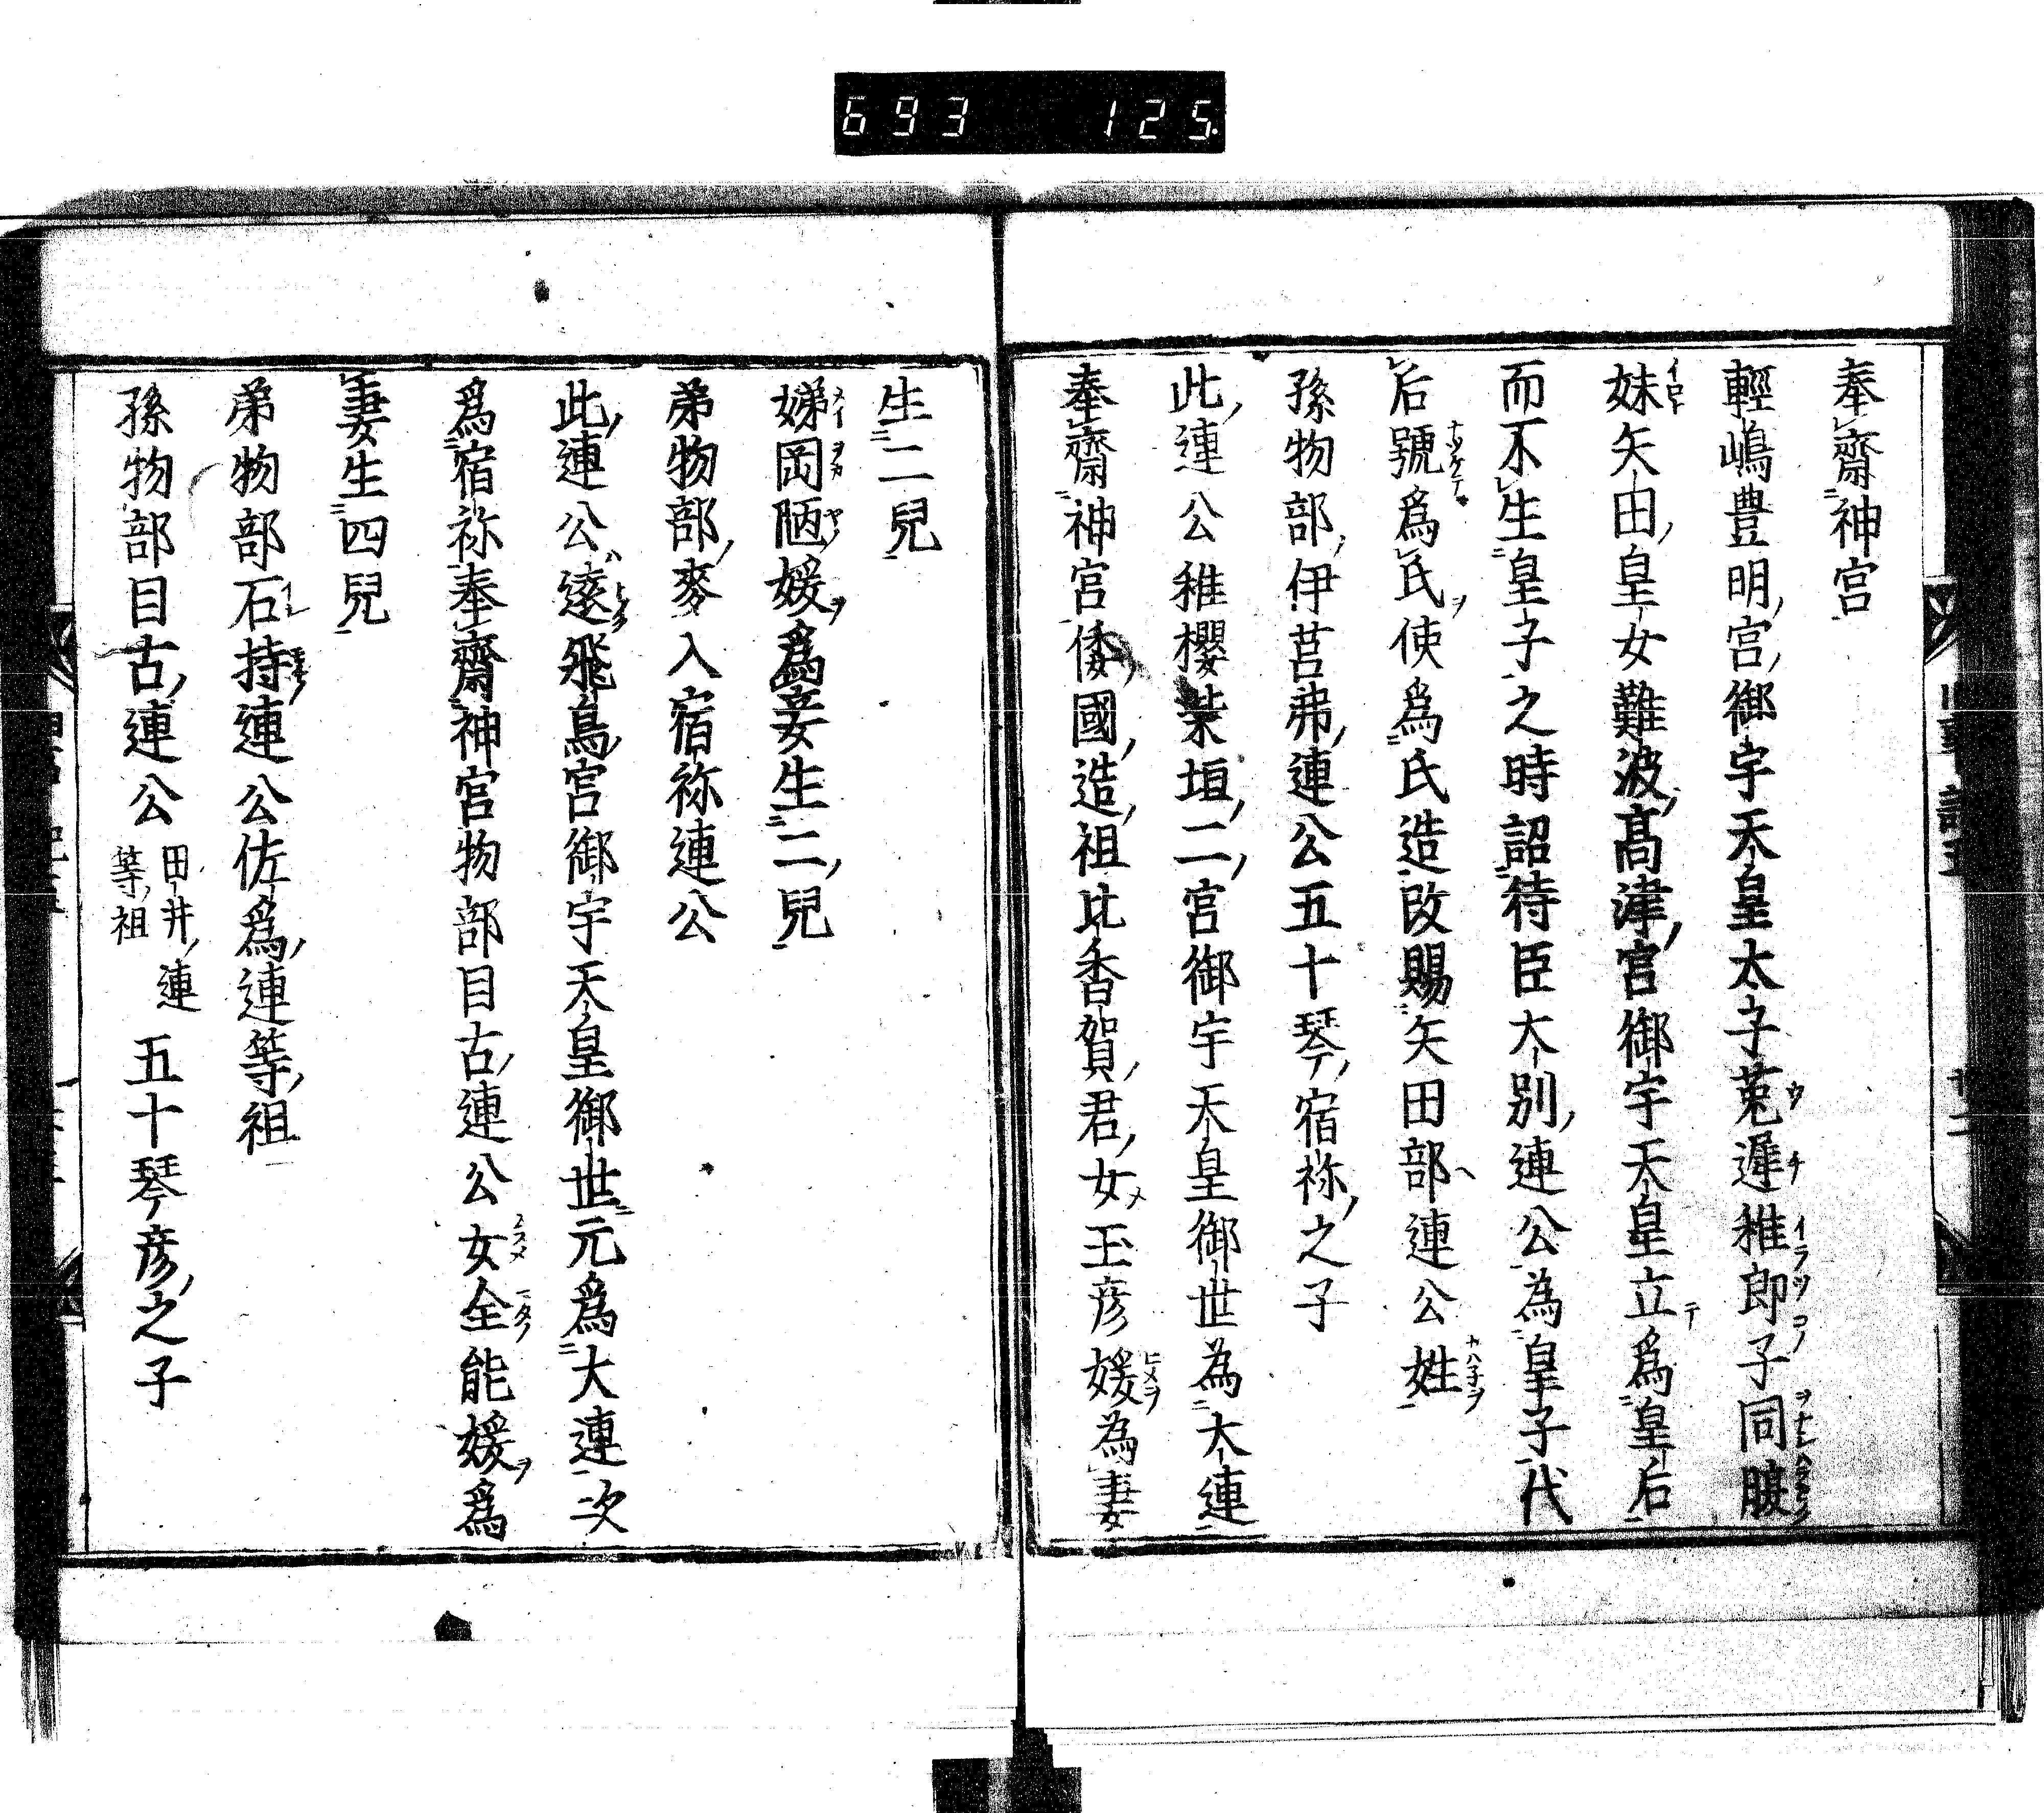 693 125
奉齋神宮
輕嶋豊明宮御宇天皇太子菟遲稚郎子同腹
妹矢田皇女難波髙津宮御宇天皇立爲皇后
而不生皇子之時詔待臣大別連公為皇子代
后號爲氏使爲氏造改賜矢田部連公姓
孫物部伊莒弗連公五十琴宿祢之子
此連公稚櫻柴垣二宮御宇天皇御世為大連
奉齋神宮倭國造祖比香賀君女玉彦媛為妻
生二兒
娣岡陋媛爲妾生二兒
弟物部麥入宿祢連公
此連公遠飛鳥宮御宇天皇御世元爲大連次
爲宿祢奉齋神宮物部目古連公女全能媛爲
妻生四兒
弟物部石持連公佐爲連等祖
孫物部目古連公田井連等祖五十琴彦之子